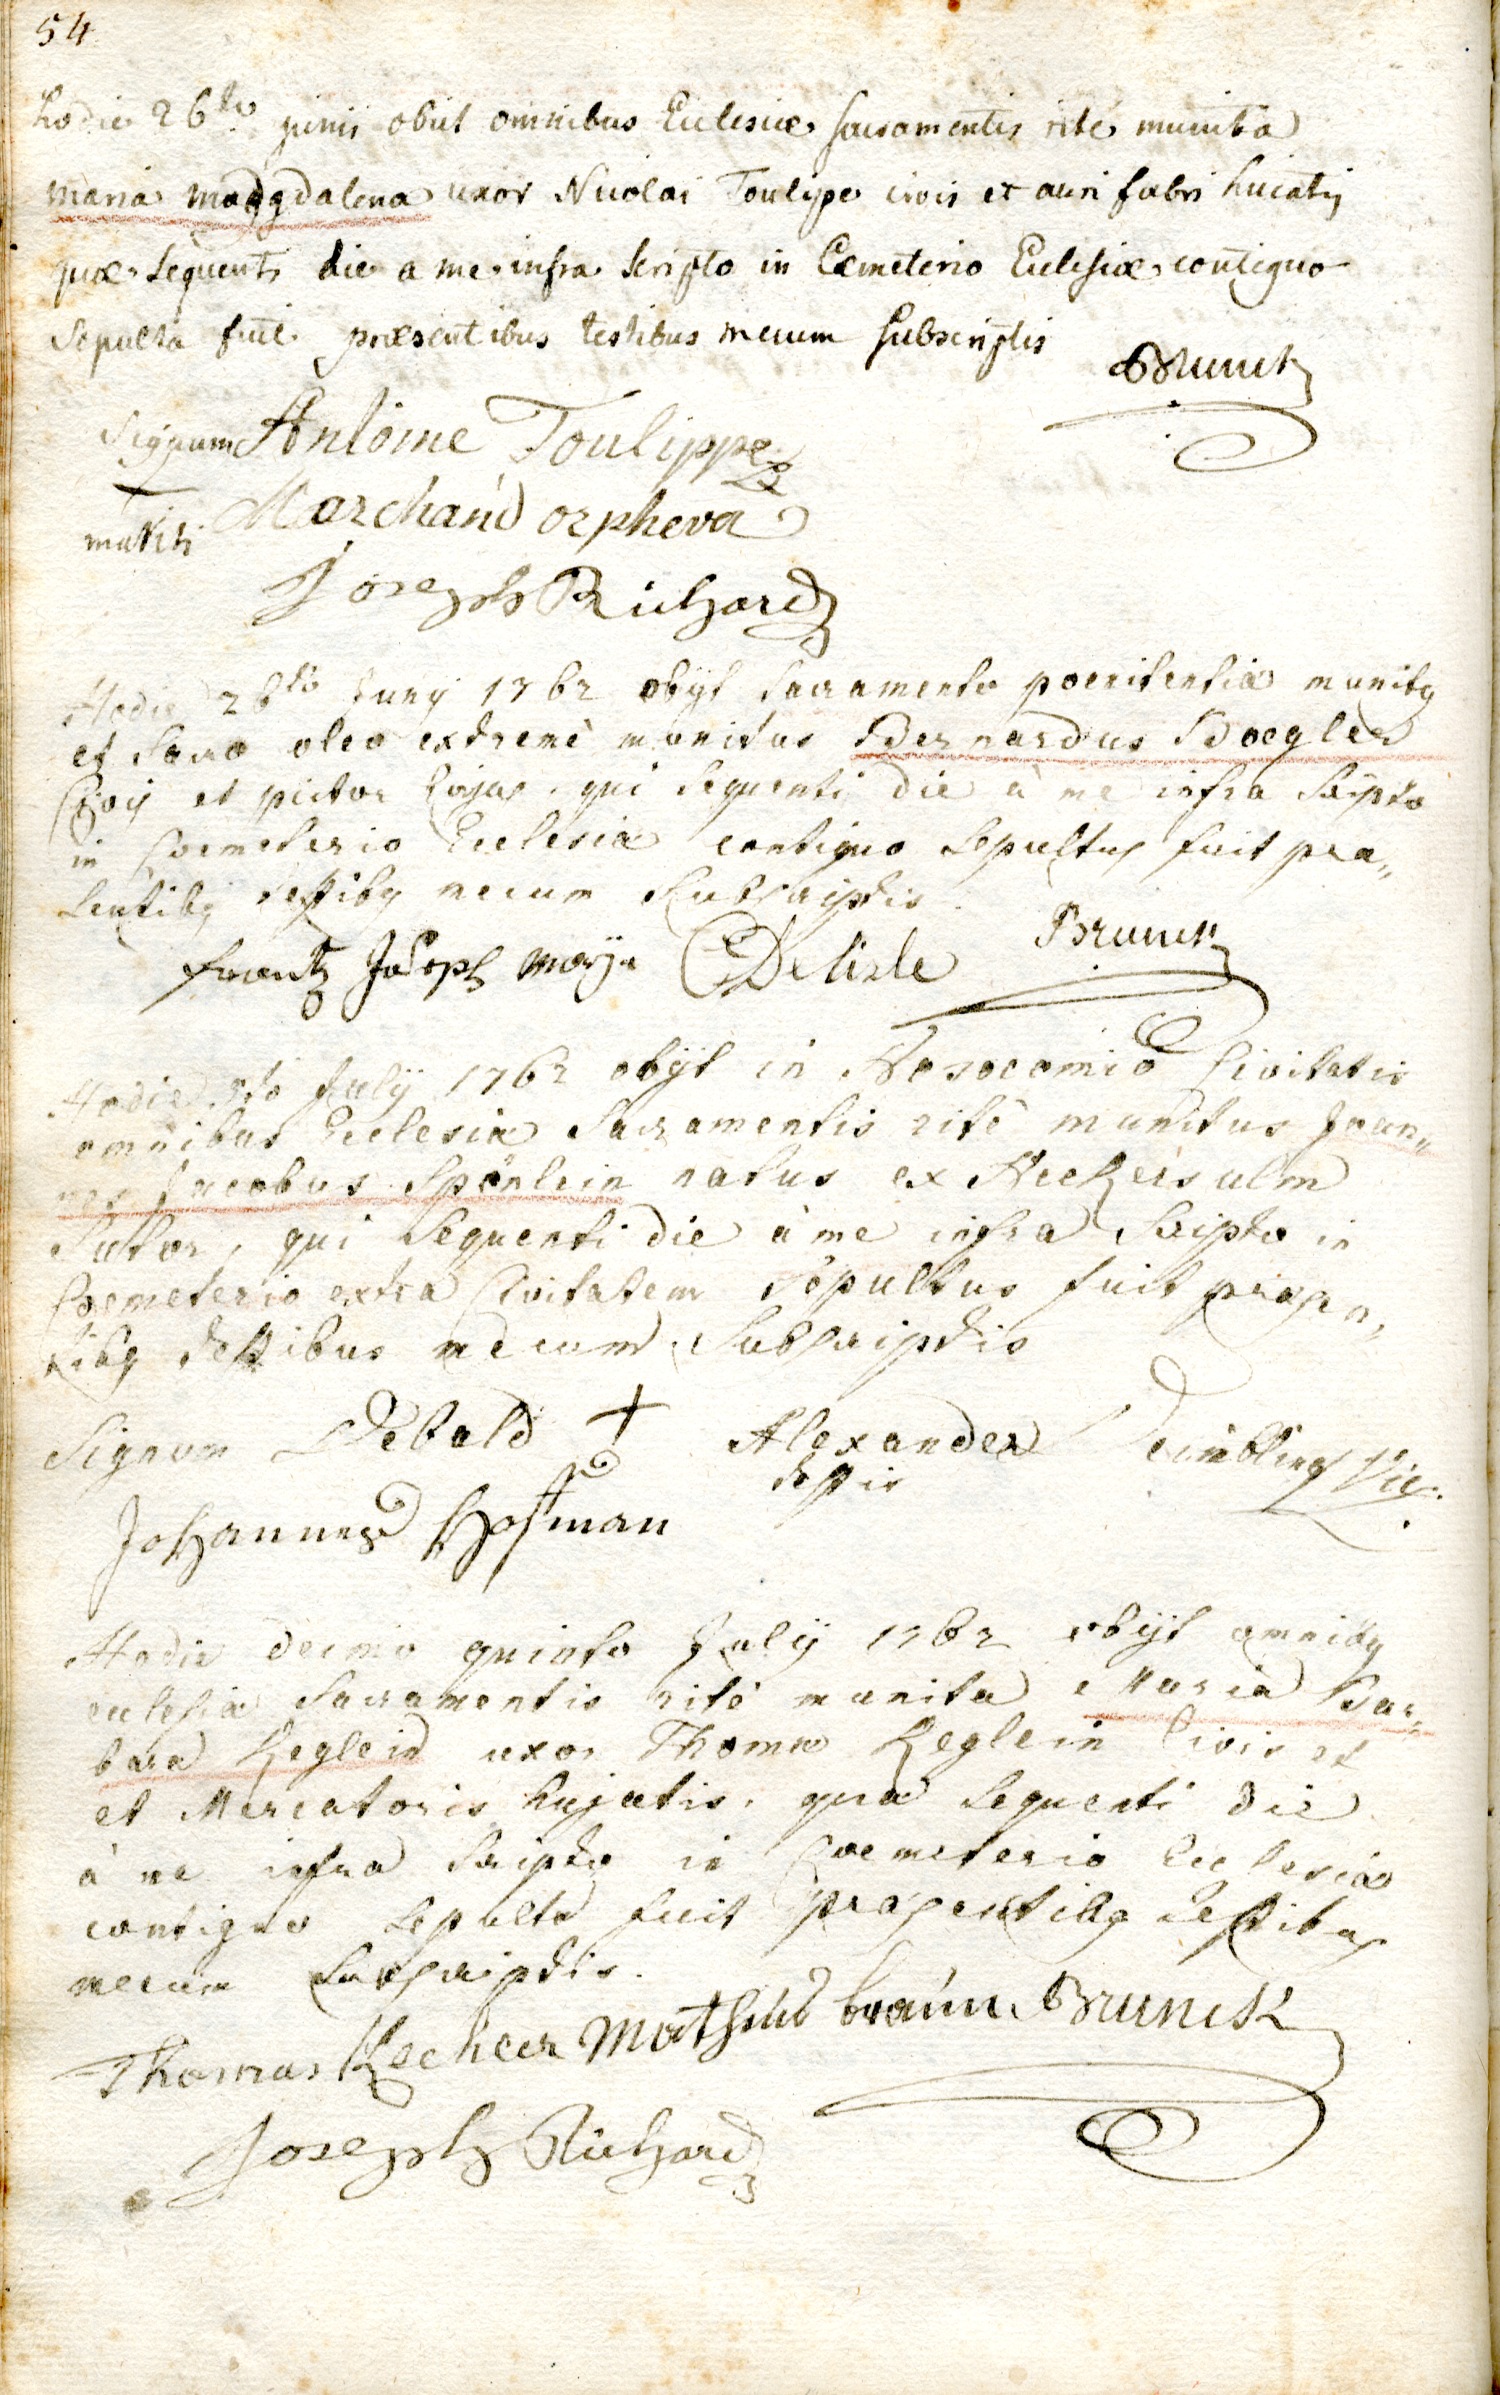 54
hodie 26to junii obiit omnibus Eclesiæ sacramentis rité munita
maria magdalena uxor Nicolai Toulipe civis et auri fabri huiatis
quæ sequenti die a me infra scripto in Cæmeterio Eclesiæ contiguo
sepulta fuit præsentibus testibus mecum subscriptis
Brunck
signum Antoine Toulippe
mariti Marchand orpheva
Joseph Richard
Hodie 28to Junÿ 1762 obÿt Sacramento poenitentiæ munitg
et Sacro oleo extremè munitus Bernardus Boegler
Civis et pictor hujas. qui sequenti die à me infra Scripto
in Coemeterio Ecclesiæ contiguo Sepultus fuit præ„
sentibg testibg mecum Subscriptis.
Brunck
frantz Joseph Delisle
Hodie Julÿ 1762 obÿt in Nosocomio Civitatis
omnibus Ecclesiæ Sacramentis ritè munitus Joan„
nes Jacobus Spönlein natus ex Neckersulm
Sutor, qui Sequenti die à me infra Scripto in
Coemeterio extra Civitatem Sepultus fuit præsen„
tibg testibus mecum Subscriptis
Signum Debald + Alexander Vic:
testis
Johannes Hofman
Hodie decimo quinto Julÿ 1762 obÿt omnibg
eclesiæ Sacramentis ritè munita Maria Bar„
bara Keglein uxor Thomæ Keglein Civis et
et Mercatoris hujatis. quæ sequenti die
à me infra Scripto in Coemeterio Ecclesiæ
contiguo Sepulta fuit præsentibg testibus
mecum Subscriptis.
Thomas Mathis braun Brunck
Joseph Richard